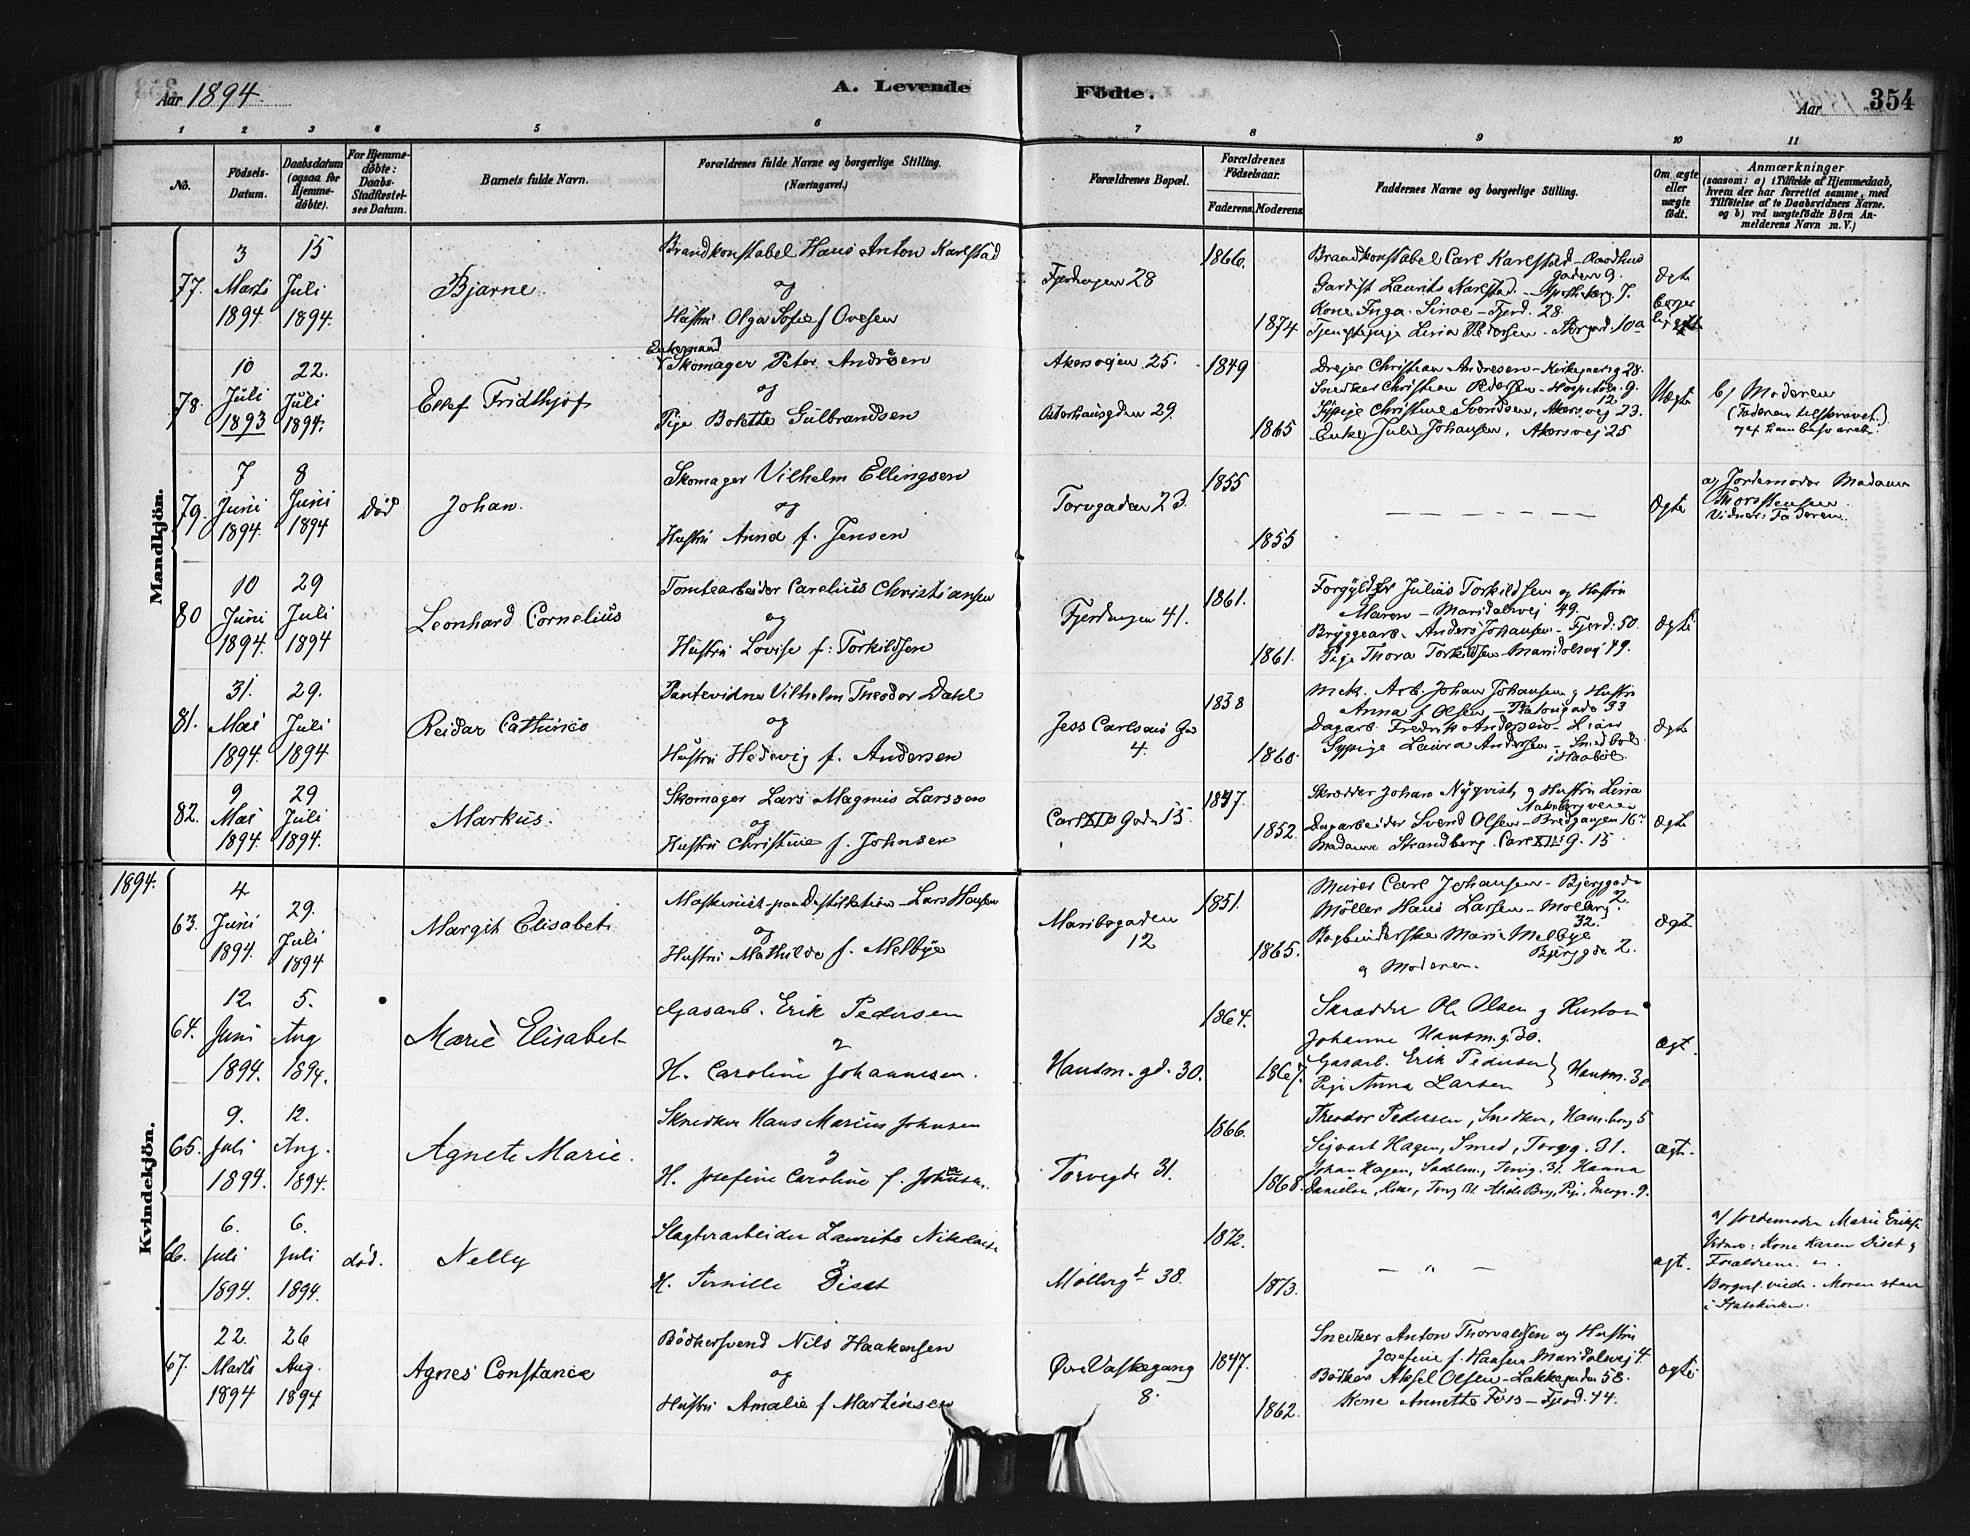 Aar 1894.
A. Levende Födte.
Aar
354
1 2 3 4 5 6 7 8 9 10 11
No.
Födsels-Datum.
Daabsdatum (ogsaa for Hjemmedöbte).
For Hjemmedöbte: Daabs-Stadfæstelses Datum.
Barnets fulde Navn.
Forældrenes fulde Navne og borgerlige Stilling. (Næringsvei.)
Forældrenes Bopæl.
Forældrenes Födselsaar.
Faderens. Moderens.
Faddernes Navne og borgerlige Stilling.
Om ægte eller uægte födt.
Anmærkninger
(saasom: a) i Tilfælde af Hjemmedaab, hvem der har forrettet samme, med Tilföielse af to Daabsvidners Navne. og b) ved uægtefödte Börn Anmelderens Navn m. V.)
Mandkjön.
77.
3 Marts 1894.
15 Juli 1894.
Bjarne
Brandkonstabel Hans Anton Karlstad
og
Hustru Olga Sofie f Ovesen
Fjerdingen 28
1866.
1874
Brandkonstabel Carl Karlstad - Raadhus
gaden 9.
Gardist Laurits Karlstad - Apothekerg. 7.
Kone Inga - Fjerd. 28.
Ægte
78.
10 Juli 1893
22. Juli 1894.
Ellef Fridthjof
Enkemand
Skomager Peter Andrésen
og
Pige Bolette Gulbrandsen
Akersveien 25.
29.
1849
1865
Drejer Christian Andresen - Kirkegaardsg 28.
Snedker Christian Pedersen - g. 9.
Sypige Christine Svendsen, Akersvej 23.
Enke Julie Johansen, Akersvej 25
Uægte
b/ Moderen
79.
7 Juni 1894.
8 Juni 1894
død
Johan.
Skomager Vilhelm Ellingsen
og
Hustru Anna f. Jensen
Torvgaden 23.
1855
1855
— — — — — — —
Ægte
a, Jordemoder Madame
Thorstensen
Vidner: Faderen.
80
10 Juni 1894.
29 Juli 1894
Leonhard Cornelius
Tomtearbeider Carelius Christiansen
og
Hustru Lovise f: Torkildsen
Fjerdingen 41.
1861.
1861.
Forgylder Julius Torkildsen og Hustru
Maren - Maridalsvej 49.
Bryggearb. Anders Johansen - Fjerd: 50.
Pige Thora Torkildsen Maridalsvej 49.
Ægte
81.
31. Mai 1894.
29. Juli 1894
Reidar Cathinius
Pantevidne Vilhelm Theodor Dahl
og
Hustru Hedevig f. Andersen
Jess Carlsens Gd
4.
1838
1860.
Mek. Arb. Johan Johansen og Hustru
Anna f Olsen - 33
Dagarb. Fredrik Andersen - Lian
Sypige Laura Andersen -
Ægte
82.
9 Mai 1894.
29 Juli 1894.
Markus.
Skomager Lars Magnus Larsson
og
Hustru Christine f. Johnsen
Carl XIIs Gade 15.
1847.
1852.
Skrædder Johan Nyqvist og Hustru Lina
Dagarbeider Svend Olsen - Bredgangen 16
Madame Strandberg. Carl XIIs g. 15
Ægte
Kvindekjön.
1894.
63.
4 Juni 1894.
29. Juli 1894
Margit Elisabet.
Maskinist paa Destillation - Lars Hansen
og
Hustru Mathilde f. Melbye
Maribogaden
12
1851.
1865.
Murer Carl Johansen - Bjerggade
2.
Møller Hans Larsen - Mollerg.
32.
Bogbinderske Marie Melbye
Bjerggde 2.
og Moderen.
Ægte
64.
12. Juni 1894.
5. Aug 1894.
Marie Elisabet
Gasarb. Erik Pedersen
H. Caroline Johannesen.
Hausm. gd. 30.
1864.
1867.
Skrædder Ole Olsen og Hustru
Johanne Hausm.g. 30.
Gasarb. Erik Pedersen
Pige Anna Larsen } Hausm. 30
Ægt.
65.
9. Juli 1894.
12. Aug. 1894.
Agnete Marie.
Snedker Hans Marius Johnsen
H. Josefine Caroline f. Johnsen.
Torvegde 31.
1866.
1868.
Theodor Pedersen, Snedker, 5
Sigvart Hagen, Smed, Torvg. 31.
Johan Hagen, Torvg. 31. Hanna
ægt.
66.
6. Juli 1894.
6. Juli 1894.
død.
Nelly
Slagterarbeider Laurits Nikolaisen
H. Pernille Diset
Møllergt 38.
1872.
1873.
— „ —
ægt.
a/ Jordemoder Marie Eriks
Vidner: Kone Karen Diset og
Forældrene.
Borgerl. viede. Moren staar
i Statskirken.
67.
22. Marts 1894
26 Aug. 1894
Agnes Constance
Bødkersvend Nils Haakensen
og
Hustru Amalie f Martinsen
Øvre Vaskegang
8.
1847.
1862.
Snedker Anton Thorvaldsen og Hustru
Josefine f. Hansen Maridalsvej 4.
Bødker Aksel Olsen - Lakkegaden 58.
Kone Annette Foss - Fjerd. 44.
Ægte